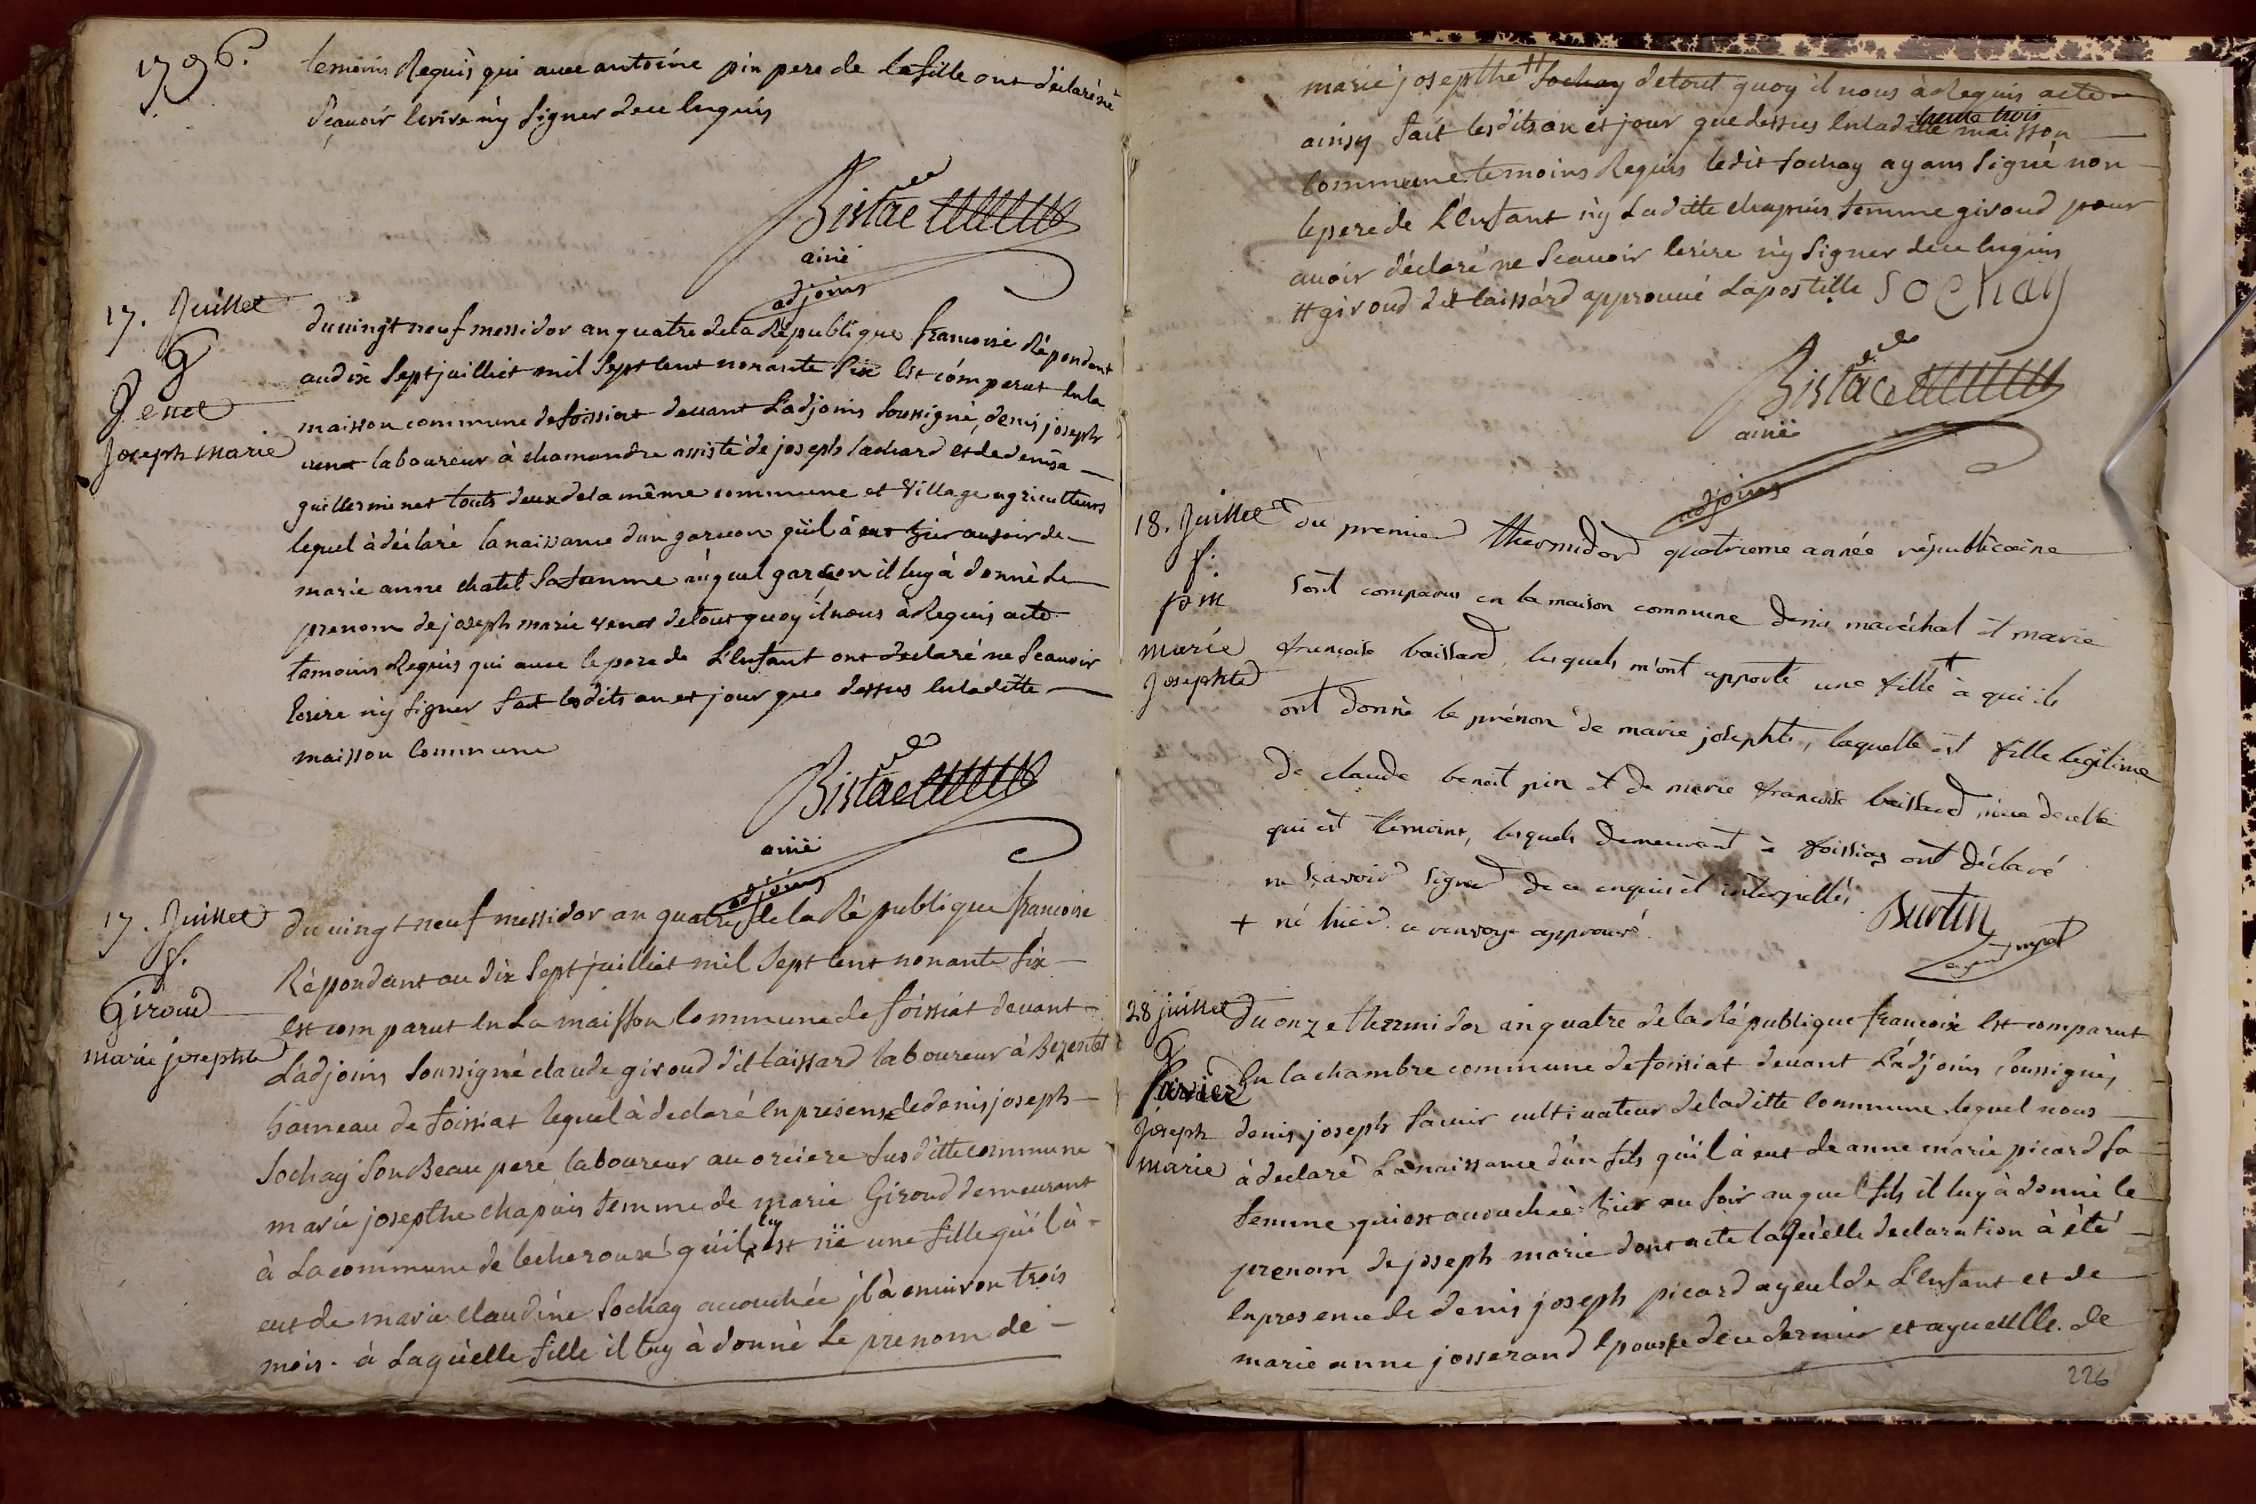 1796.
temoins Requis qui avec antoine pin pere de la fille ont déclaré né
sçavoir lerire ny signer de ce enquis
Bistac
ainé
adjoins
17. Juillet
G
Venet
Joseph marie
du vingt neuf messidor an quatre de la Republique francoise Répondant
au dix Sept juilliet mil Sept Cent nonante Six Est comparut En la
maison commune de foissiat devant L'adjoins Soussigné, denis joseph
venet laboureur à chamandre assisté de joseph lachard et de denise
guillerminet touts deux de la même commune et village agriculteurs
lequel à déclaré la naissance d'un garcon qu'il à eut hier au soir de
marie anne chatel Sa famme auquel garçon il luy à donné Le
prenom de joseph marie venet de tout quoy il nous à Requis acte
temoins Requis qui avec le pere de L'Enfant ont declaré ne Scavoir
Ecrire ny Signer fait les dits an et jour que dessus En la ditte
maison Commune
Bistac
ainé
adjoins
17. Juillet
f.
Giroud
marie josephte
du vingt neuf messidor an quatre de la République francoise
Répondant au dix Sept juilliet mil Sept Cent nonante Six
est comparut En La maison Commune de foissiat devant
L'adjoins Soussigné claude giroud dit laissard laboureur à Bezentet
hameau de foissiat lequel à declaré En presense de denis joseph
Sochay Son Beau pere laboureur au orciere Susditte commune
marie josepthe chapuis femme de marie Giroud demeurant
à La commune de lecheroux qu'il luy est né une fille qu'il à
eut de marie claudine Sochay accouchée jl à environ trois
mois. à Laquelle fille il luy à donné Le prenom de
marie josepthe # Sochay de tout quoy il nous à Requis acte
ainsy fait les dits an et jour que dessus En la ditte maisson
commune temoins Requis ledit Sochay ayans Signé non
le pere de L'Enfant n'y Laditte chapuis femme giroud pour
avoir déclaré ne Scavoir Ecrire n'y Signer de ce Enquis
# giroud dit laissard approuvé L'apostille Sochay
Bistac
ainé
adjoins
18. Juillet
f.
pin
marie
josephte
du premier thermidor quatrieme année républicaine
sont comparus en la maison commune denis maréchal et marie
francoise baissard, lesquels m'ont apporté une fille + à qui ils
ont donné le prénom de marie josephte, laquelle est fille legitime
de claude benoit pin et de marie francoise baissard, niece de celle
qui est témoins, lesquels demeurant à foissiat ont déclaré
ne sçavoir signer de ce enquis et interpellés.
+ né hier. ce renvoye approuvé.
Burtin
agent mpal
28 juillet
G
Favier
Joseph
marie
Du onze thermidor an quatre de la République francoise Est comparut
En la chambre commune de foissiat devant L'adjoins Soussigné,
denis joseph favier cultivateur de laditte Commune lequel nous
à declaré La naissance d'un fils qu'il à eut de anne marie picard Sa
femme qui est accouchée hier au soir auquel fils il luy à donné le
prenom de joseph marie dont acte laquelle declaration à été
En presence de denis joseph picard ayeul de L'Enfant et de
marie anne josserand Epouse de ce dernier et ayeulle de
226